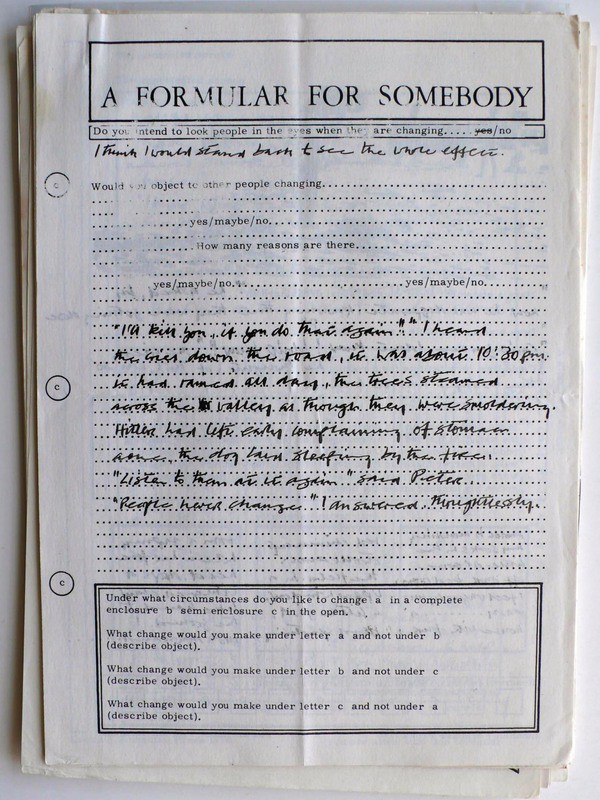 A FORMULAR FOR SOMEBODY
Do you intend to look people in the eyes when they are changing..... yes/no
I think I would stand back to see the whole effect.
c
Would you object to other people changing
yes/maybe/no
How many reasons are there
yes/maybe/no yes/maybe/no
"I'll kill you, if you do that again!" I heard
the cries down the road, it was about 10:30 pm.
c
it had rained all day, the trees steamed
across the valley as though they were smoldering.
Hitler had left early complaining of stomach
ache, the dog laid sleeping by the fire.
"Listen to them at it again" said Pieter.
"People never change" I answered, thoughtlessly.
c
Under what circumstances do you like to change a in a complete
enclosure b semi enclosure c in the open.
What change would you make under letter a and not under b
(describe object).
What change would you make under letter b and not under c
(describe object).
What change would you make under letter c and not under a
(describe object).